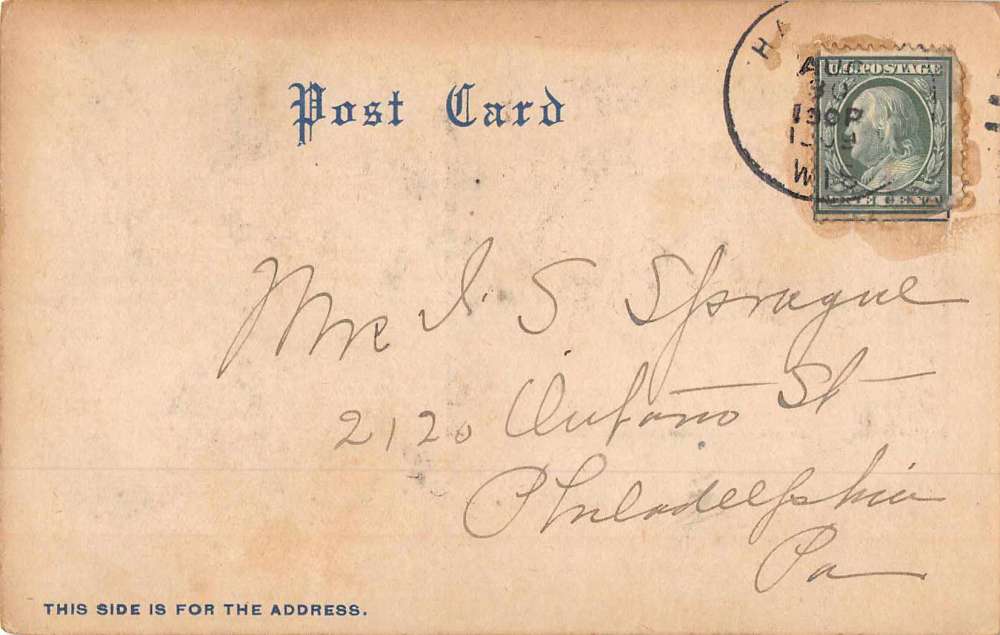 Post Card
U.S. POSTAGE
AUG
30
130P
WIS
Mr J. S. Sprague
2120 Ontario St
Philadelphia
Pa
THIS SIDE IS FOR THE ADDRESS.